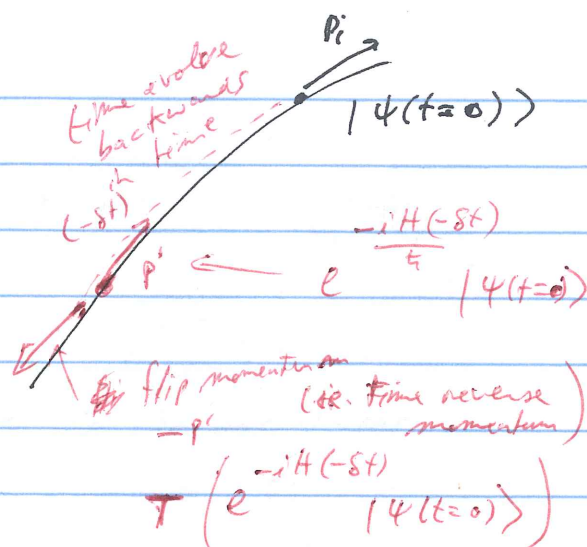 Pi
|Ψ(t=0)⟩
time evolve
backwards
in time
(-δt)
p' ← e^{-iH(-δt)/ħ} |Ψ(t=0)⟩
flip momentum (ie. time reverse
-p' momentum)
T(e^{-iH(-δt)} |Ψ(t=0)⟩)